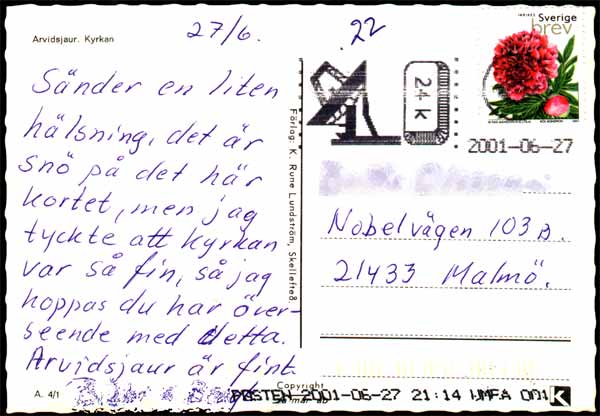 27/6.
22
Arvidsjaur. Kyrkan
Sänder en liten
hälsning, det är
snö på det här
kortet, men jag
tyckte att kyrkan
var så fin, så jag
hoppas du har över-
seende med detta.
Arvidsjaur är fint
A. 4/1
Förlag: K. Rune Lundström, Skellefteå.
Copyright
Sverige
brev
24 K
2001-06-27
Nobelvägen 103 B.
21433 Malmö.
POSTEN 2001-06-27 21:14 UMEA 001 K